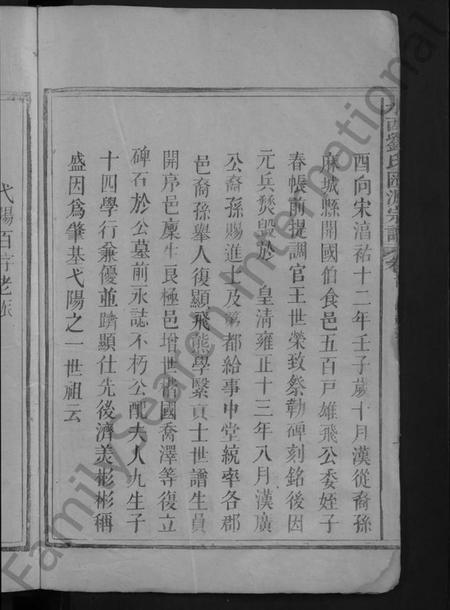 酉向宋淳祐十二年壬子歲十月漢從裔孫
麻城縣開國伯食邑五百戸雄飛公委姪子
春帳前提調官王世榮致祭勒碑刻銘後因
元兵焚毀於　皇清雍正十三年八月漢廣
公裔孫賜進士及第都給事中堂統率各郡
邑裔孫舉人復顯飛熊學繫貢士世譜生員
開序邑廩生良極邑增世清國喬澤等復立
碑石於公墓前永誌不朽公配夫人九生子
十四學行兼優並躋顯仕先後濟美彬彬稱
盛因爲肇基弋陽之一世祖云
西劉氏匯源宗譜 卷首
弋陽百
FamilySearch International